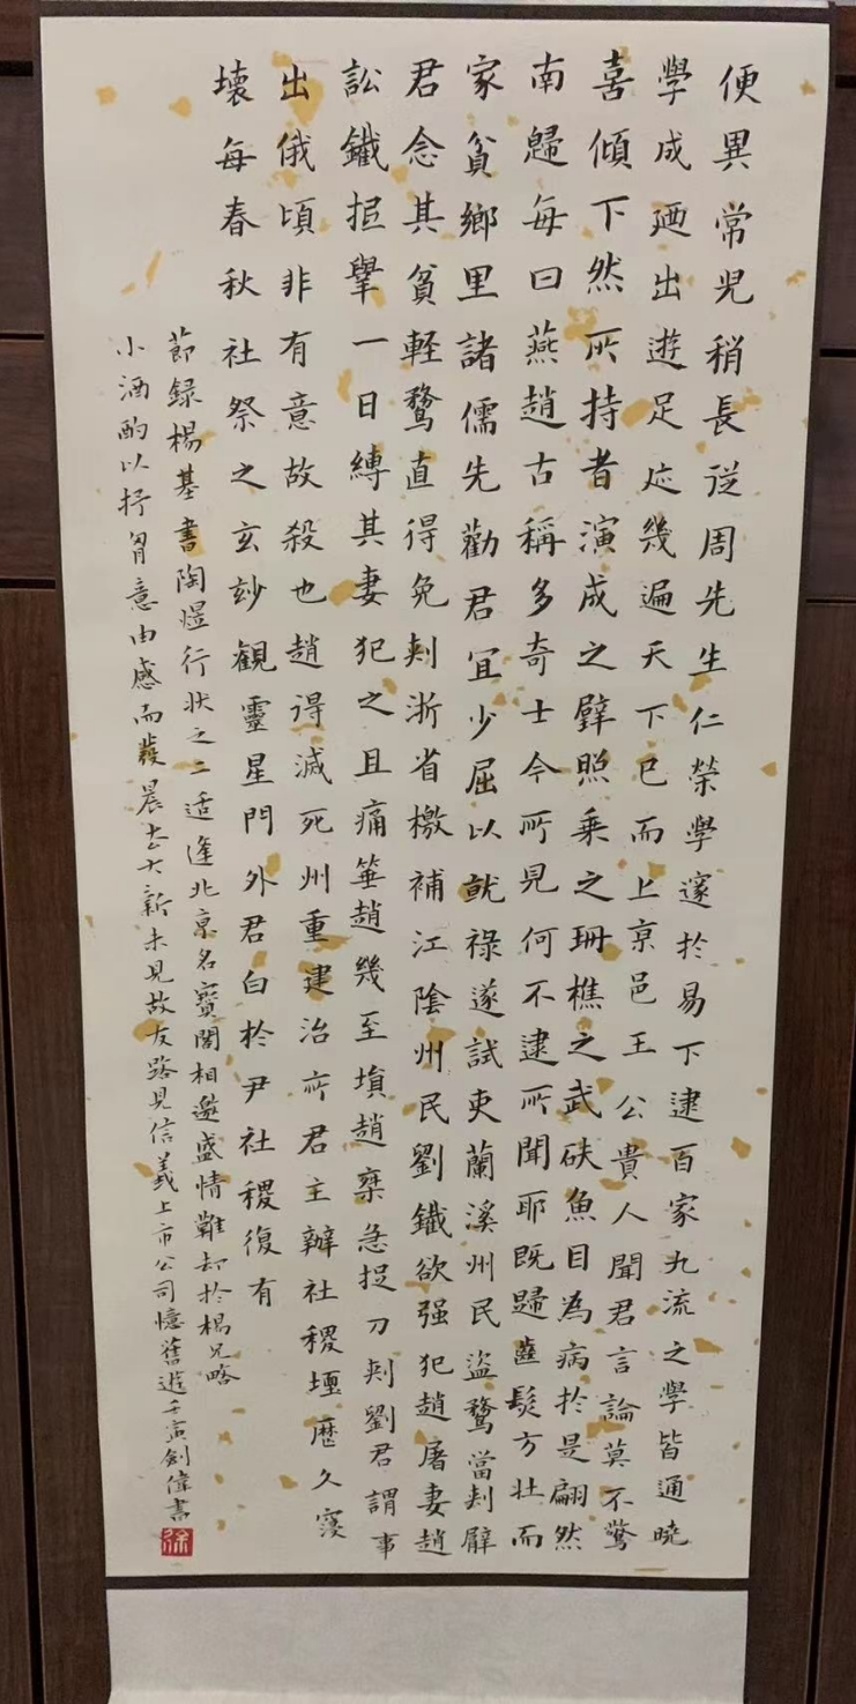 便異常児稍長從周先生仁榮學邃於易下逮百家九流之學皆通曉
學成廼出遊足迹幾遍天下已而上京邑王公貴人聞君言論莫不驚
喜傾下然所持者演成之璧照乘之珊樵之武砆魚目為病於是翩然
南歸每曰燕趙古稱多奇士今所見何不逮所聞耶既歸齒髮方壮而
家貧鄉里諸儒先勸君宜少屈以就祿遂試吏蘭溪州民盜鶩當刺臂
君念其貧輕鶩直得免刺浙省檄補江陰州民劉鐵欲强犯趙屠妻趙
訟鐵拒擧一日縛其妻犯之且痛箠趙幾至損趙棄急捉刀刺劉君謂事
出俄頃非有意故殺也趙得減死州重建治所君主辦社稷壇歷久寖
壊每春秋社祭之玄玅觀靈星門外君白於尹社稷復有
節録楊基書陶煜行状之二适逢北京名寶閣相邀盛情難却於楊兄略
小酒酌以抒胷意由感而發晨去大新未見故友路見信義上市公司憶舊遊壬寅劍偉書
徐